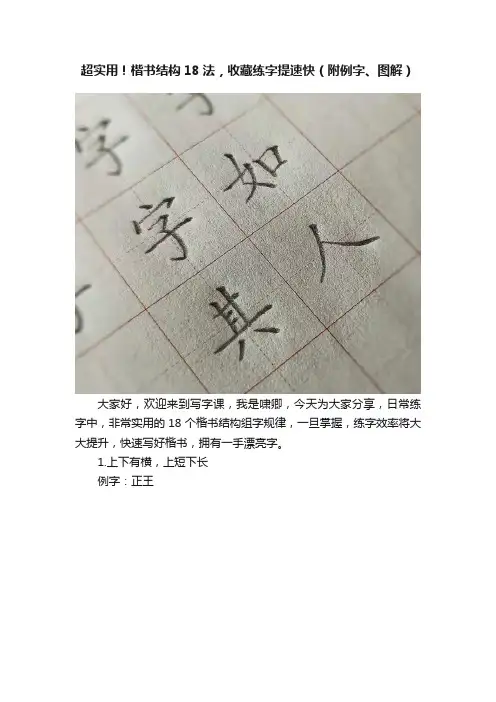 超实用！楷书结构18法，收藏练字提速快（附例字、图解）
字
字如
其人
大家好，欢迎来到写字课，我是啸卿，今天为大家分享，日常练
字中，非常实用的18个楷书结构组字规律，一旦掌握，练字效率将大
大提升，快速写好楷书，拥有一手漂亮字。
1.上下有横，上短下长
例字：正王